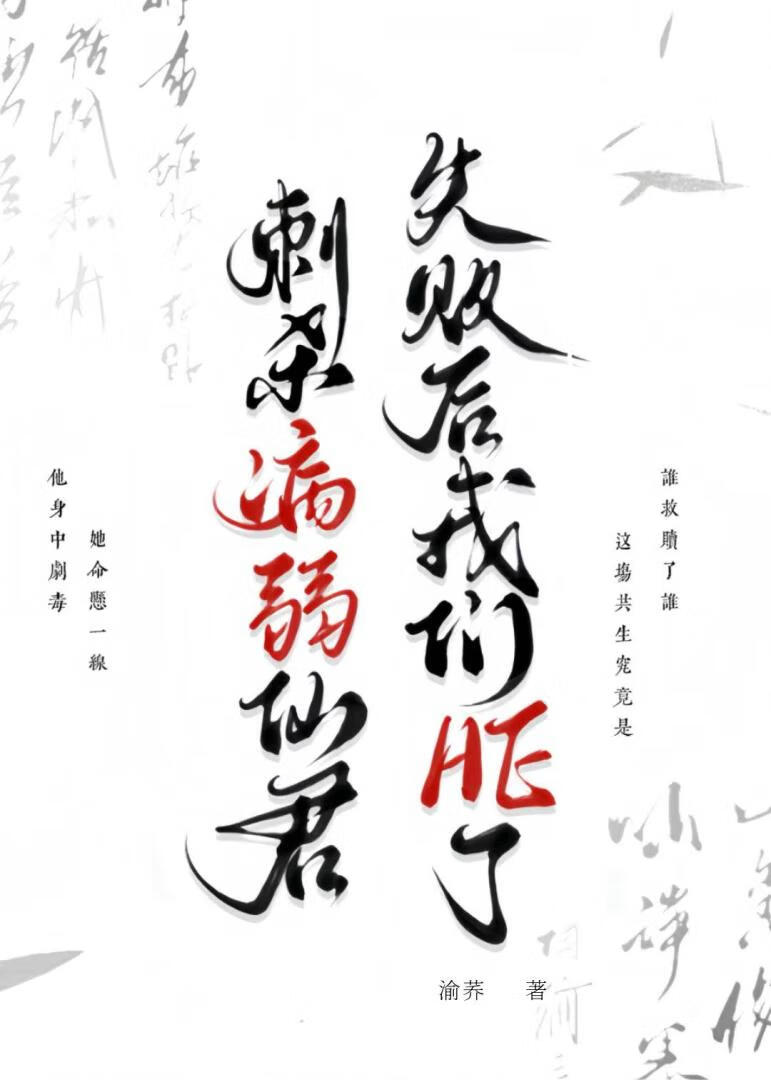 刺杀病弱仙君
失败后我们HE了
他身中劇毒
她命懸一線
这場共生究竟是
誰救贖了誰
渝荞 著